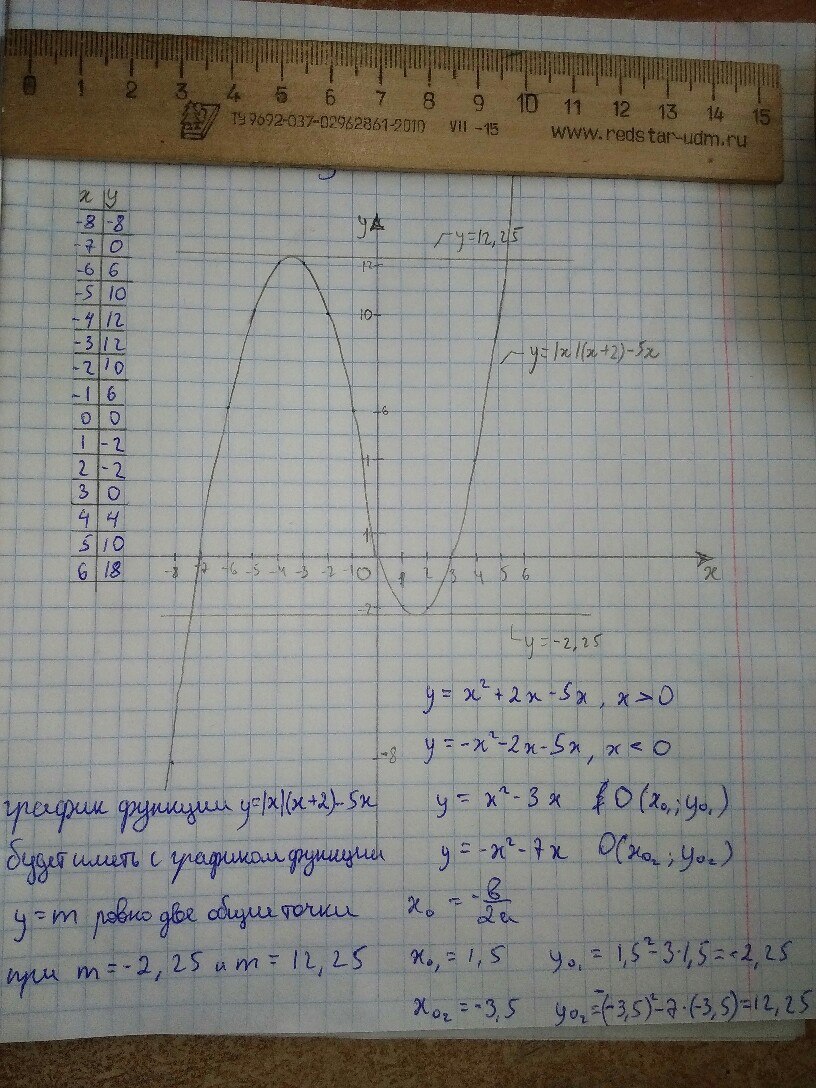 0 1 2 3 4 5 6 7 8 9 10 11 12 13 14 15
ТУ 9692-037-02962861-2010 VII -15 www.redstar-udm.ru
x y
-8 -8
-7 0
-6 6
-5 10
-4 12
-3 12
-2 10
-1 6
0 0
1 -2
2 -2
3 0
4 4
5 10
6 18
y
y=12,25
12
10
y=|x|(x+2)-5x
6
1
1
-8 -7 -6 -5 -4 -3 -2 -1 0 1 2 3 4 5 6
x
-2
y=-2,25
-8
y = x²+2x-5x, x>0
y = -x²-2x-5x, x<0
график функции y=|x|(x+2)-5x
будет иметь с графиком функции
y=m ровно две общие точки
при m=-2,25 и m=12,25
y = x²-3x O(x₀₁;y₀₁)
y = -x²-7x O(x₀₂;y₀₂)
x₀ = -в/2a
x₀₁ = 1,5 y₀₁ = 1,5²-3·1,5=-2,25
x₀₂ = -3,5 y₀₂=-(-3,5)²-7·(-3,5)=12,25